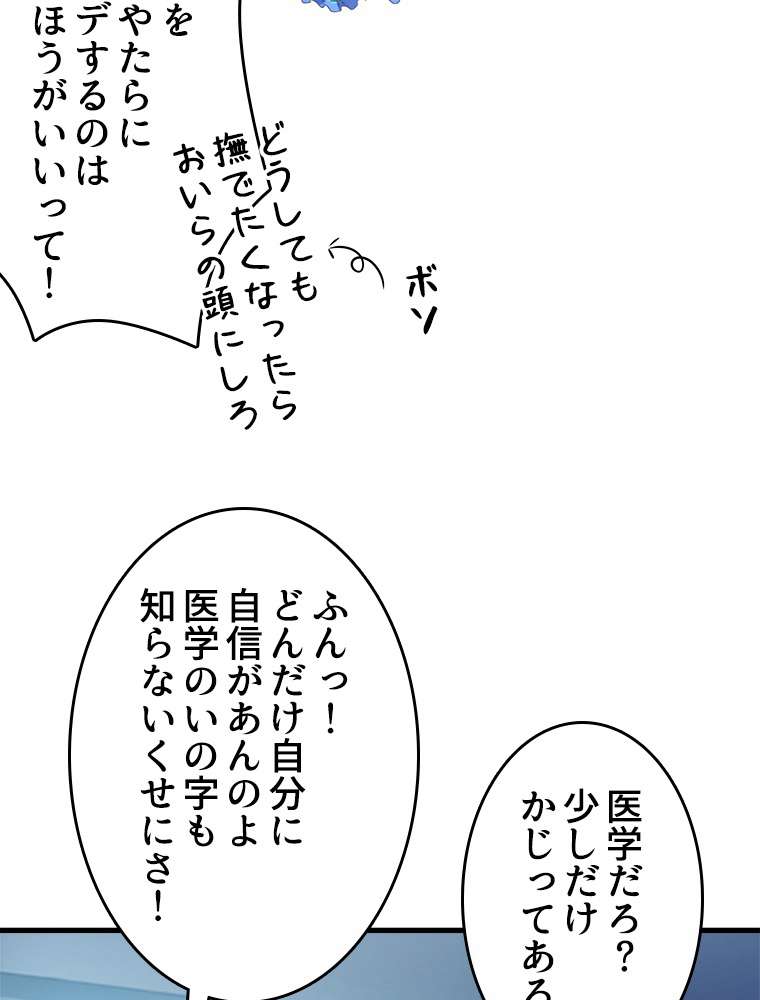 を
やたらに
デするのは
ほうがいいって!
どうしても
撫でたくなったら
おいらの頭にしろ
ボソ
ふんっ!
どんだけ自分に
自信があんのよ
医学のいの字も
知らないくせにさ!
医学だろ?
少しだけ
かじってある